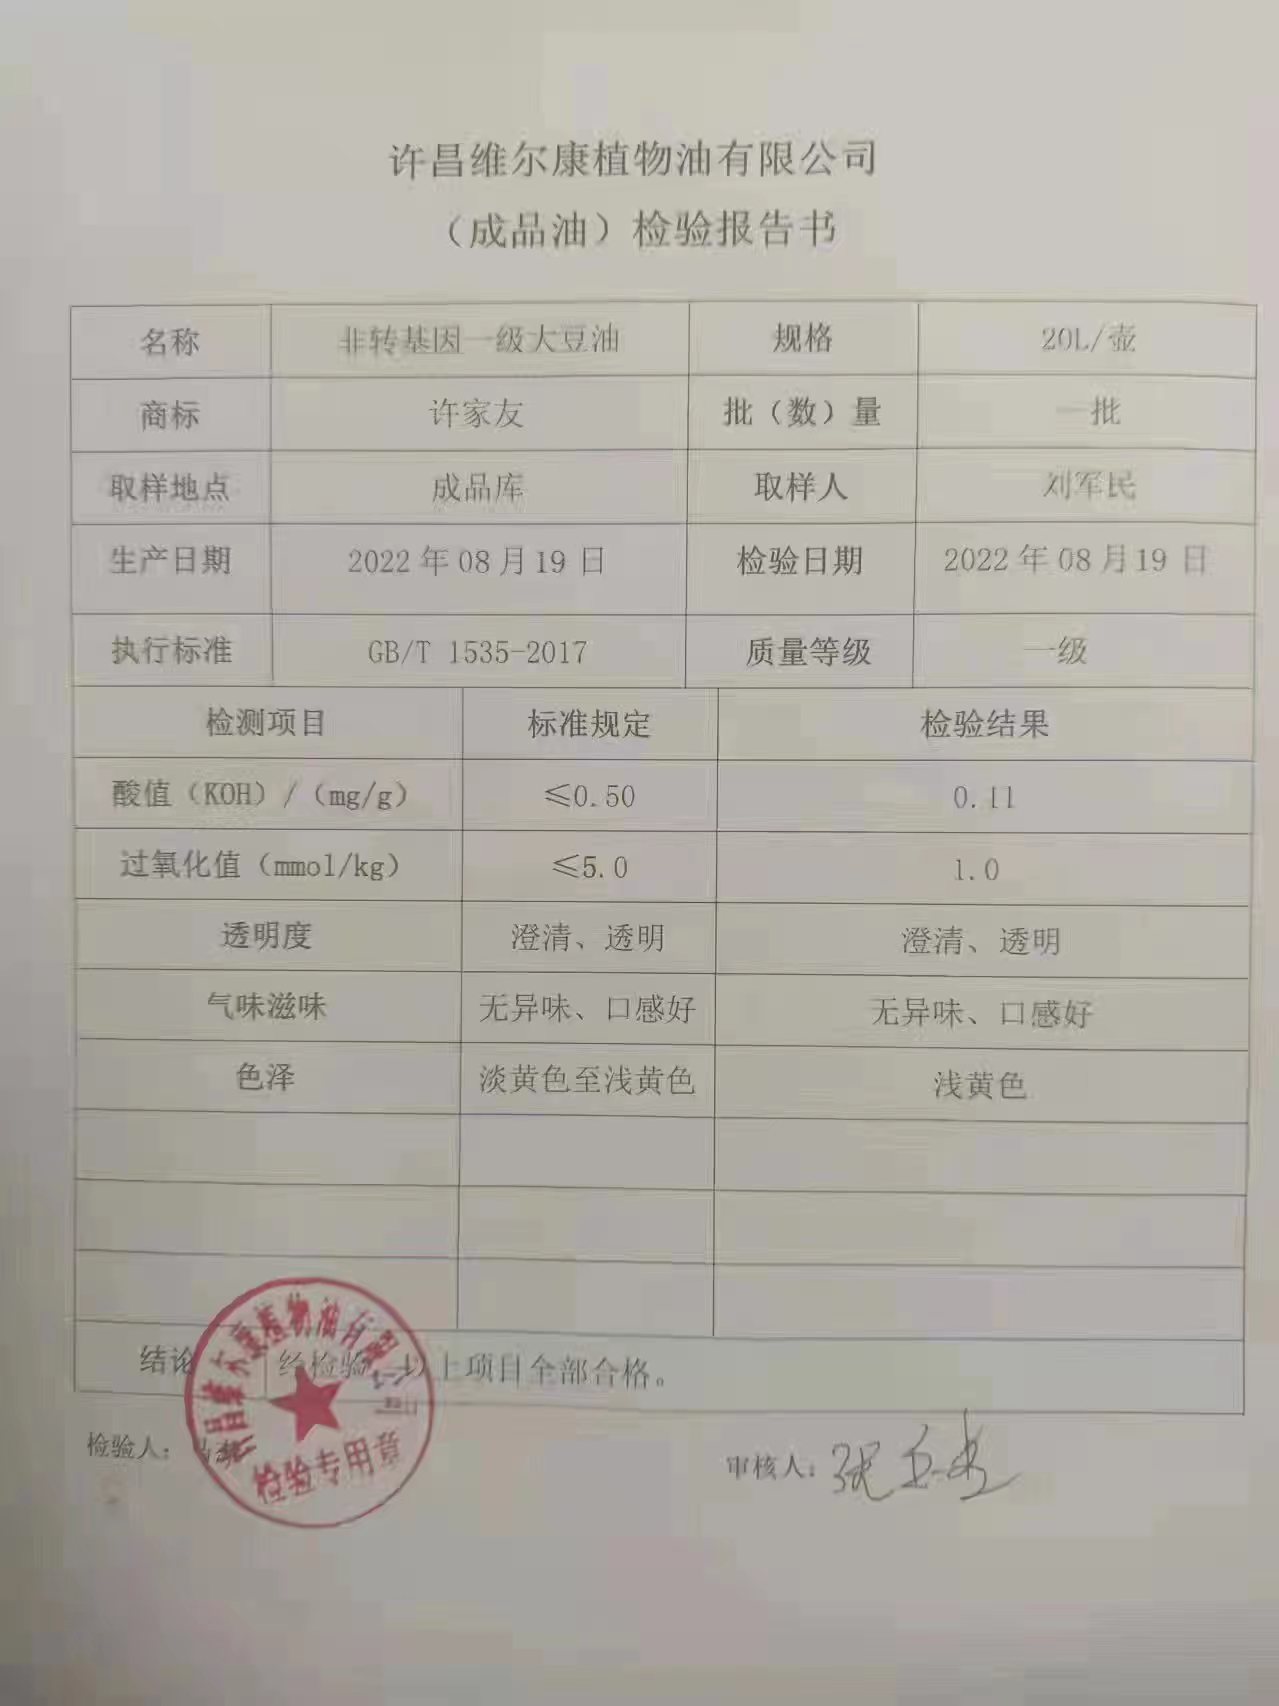 许昌维尔康植物油有限公司
（成品油）检验报告书
名称 非转基因一级大豆油 规格 20L/壶
商标 许家友 批（数）量 一批
取样地点 成品库 取样人 刘军民
生产日期 2022年08月19日 检验日期 2022年08月19日
执行标准 GB/T 1535-2017 质量等级 一级
检测项目 标准规定 检验结果
酸值（KOH）/（mg/g） ≤0.50 0.11
过氧化值（mmol/kg） ≤5.0 1.0
透明度 澄清、透明 澄清、透明
气味滋味 无异味、口感好 无异味、口感好
色泽 淡黄色至浅黄色 浅黄色
结论 经检验 以上项目全部合格。
检验人： 马
审核人：张
许昌维尔康植物油有限公司
检验专用章